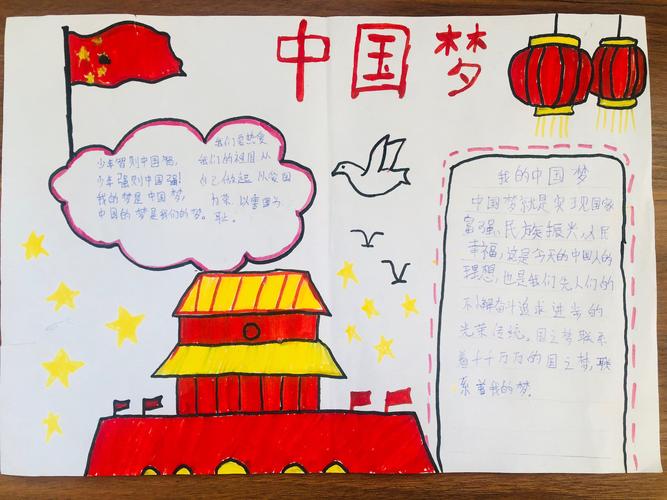 中国梦
少年智则中国智，
少年强则中国强！
我的梦是中国梦，
中国的梦是我们的梦。
我们要热爱
我们的祖国从
自己做起从爱国
为荣以害国为
耻。
我的中国梦
中国梦就是实现国家
富强、民族振兴、人民
幸福，这是今天的中国人的
理想，也是我们先人们的
不懈奋斗追求进步的
光荣传统。国之梦联系
着千千万万的国之梦，联
系着我的梦。